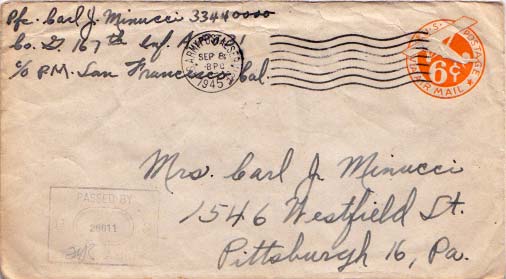 Pfc. Carl J. Minucci 33440000
Co. G. 167th Inf. A.P.O.
c/o P.M. San Francisco, Cal.
U.S. POSTAGE
VIA AIR MAIL
6¢
SEP 8
8 PM
1945
Mrs. Carl J. Minucci
1546 Westfield St.
Pittsburgh 16, Pa.
PASSED BY
26011